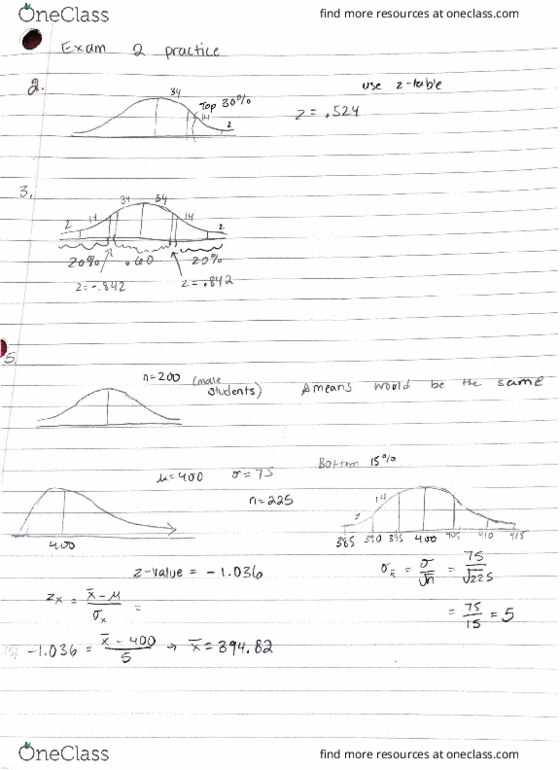 OneClass find more resources at oneclass.com
Exam 2 practice
2.
34 Top 30% 14 2
use z-table
z = .524
3.
2 14 34 34 14 2
20% .60 20%
z = -.842 z = .842
5.
n=200 (male students) means would be the same
μ=400 σ=75 Bottom 15%
n=225
2 14
400
385 390 395 400 405 410 415
z-value = -1.036
σx̄ = σ/√n = 75/√225
zx = x̄-μ/σx =
= 75/15 = 5
-1.036 = x̄-400/5 → x̄ = 394.82
OneClass find more resources at oneclass.com